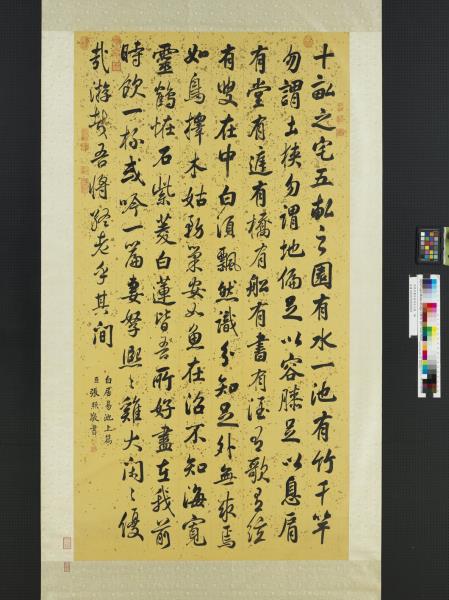 十畝之宅五畝之園有水一池有竹千竿
勿謂土狹勿謂地偏足以容膝足以息肩
有堂有庭有橋有船有書有酒有歌有弦
有叟在中白須飄然識分知足外無求焉
如鳥擇木姑務巢安如魚在沼不知海寬
靈鶴怪石紫菱白蓮皆吾所好盡在我前
時飲一杯或吟一篇妻孥熙〻雞犬閑〻優
哉游哉吾將終老乎其間
白居易池上篇
臣張照敬書